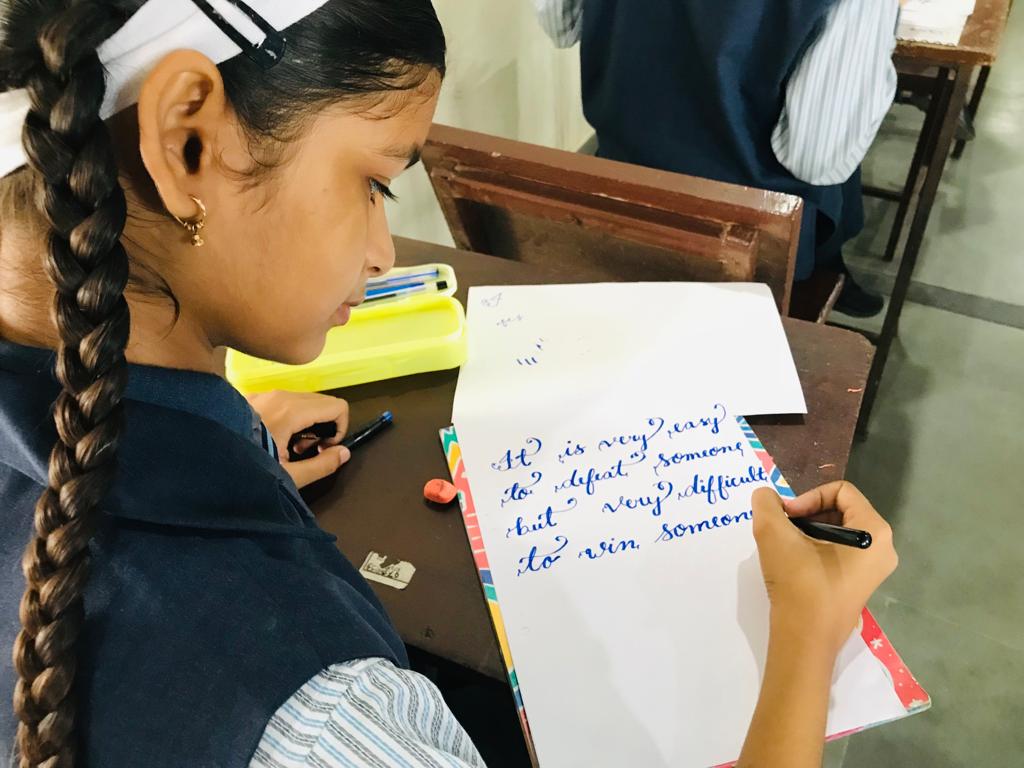 It is very easy
to defeat someone
but very difficult
to win someone